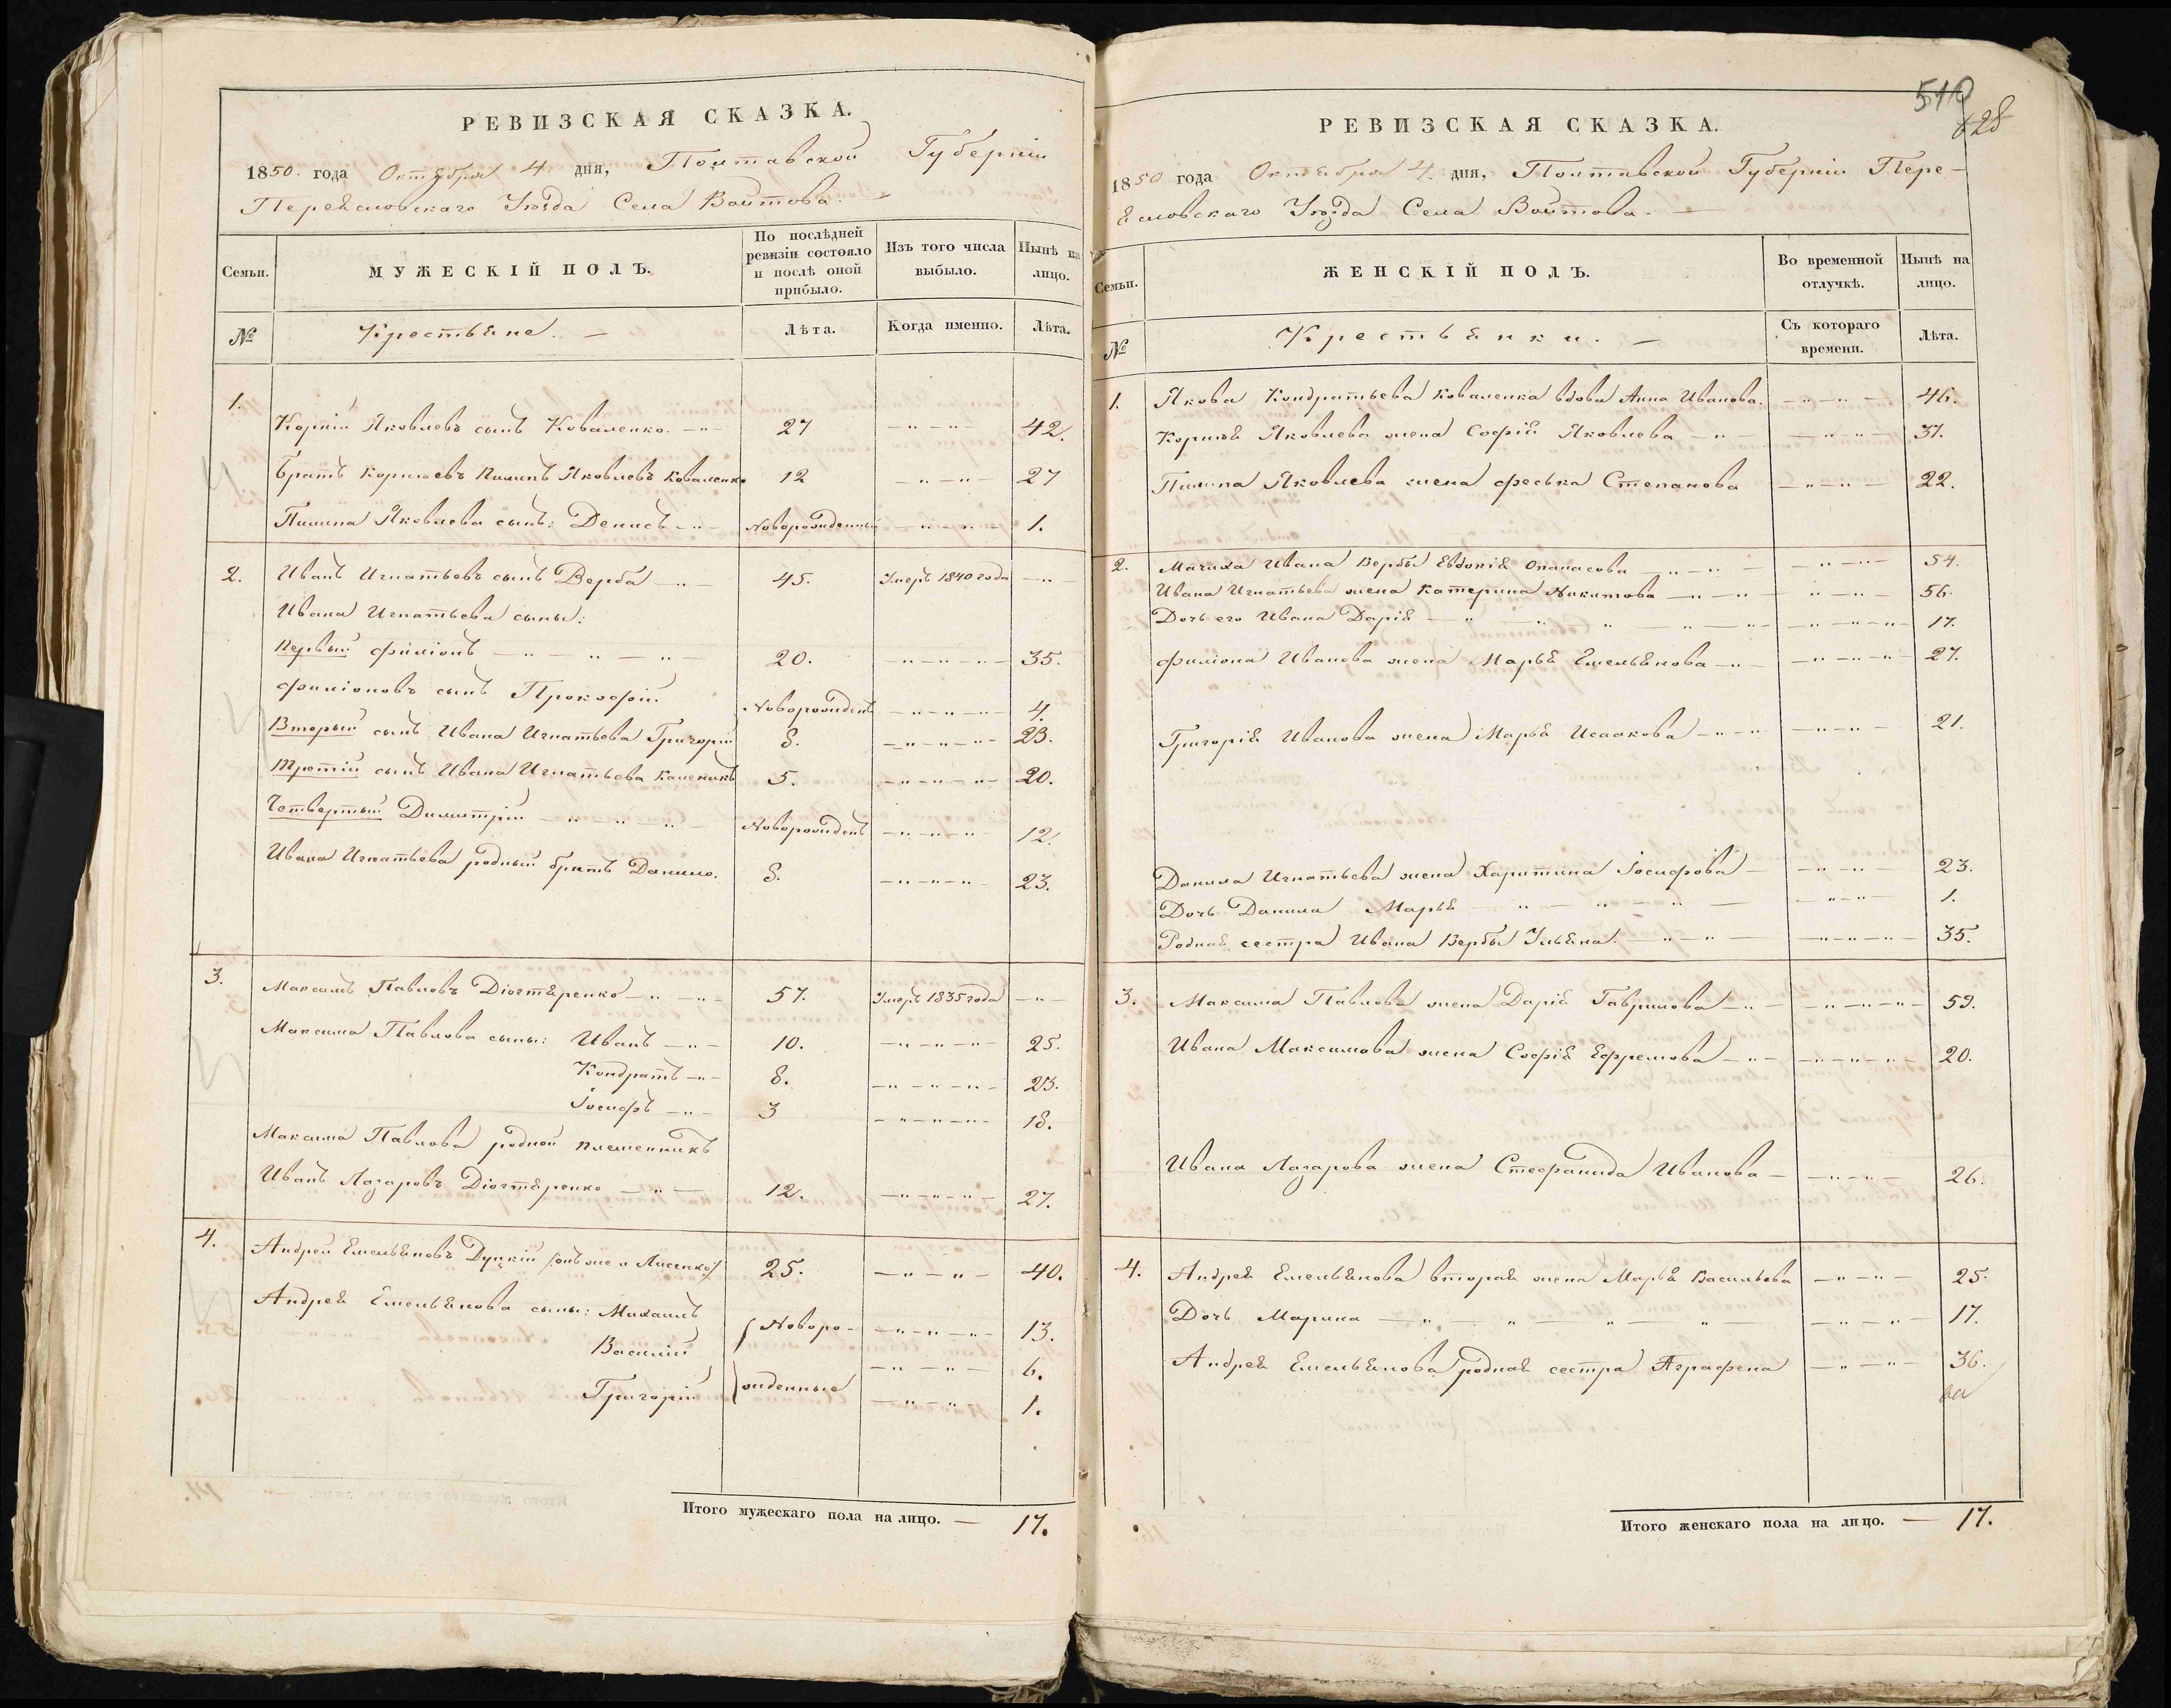 РЕВИЗСКАЯ СКАЗКА.
1850. года Октября 4 дня, Полтавской Губерніи
Переясловскаго Уѣзда Села Войтова. —
Семьи.
МУЖЕСКІЙ ПОЛЪ.
По послѣдней ревизіи состояло и послѣ оной прибыло.
Изъ того числа выбыло.
Нынѣ на лицо.
№
Крестьяне. —
Лѣта.
Когда именно.
Лѣта.
1.
Корній Яковлевъ сынъ Коваленко. — 27 42.
Братъ Корніевъ Пилипъ Яковлевъ Коваленко 12 27
Пилипа Яковлева сынъ: Денисъ — Новорожденный 1.
2. Иванъ Игнатьевъ сынъ Верба — 45. Умеръ 1840 года —
Ивана Игнатьева сыны:
Первый Филіонъ — 20. 35.
Филіоновъ сынъ Прокофій. Новорожденъ 4.
Вторый сынъ Ивана Игнатьева Григорій 8. 23.
Третій сынъ Ивана Игнатьева Каленикъ 5. 20.
Четвертый Димитрій — Новорожденъ 12.
Ивана Игнатьева родный братъ Данило. 8. 23.
3. Максимъ Павловъ Діогтяренко — 57. Умеръ 1835 года —
Максима Павлова сыны: Иванъ — 10. 25.
Кондратъ — 8. 23.
Іосифъ — 3 18.
Максима Павлова родной племенникъ
Иванъ Лазаровъ Діогтяренко — 12. 27.
4. Андрей Емельяновъ Дуцкій /: онъ же и Лисенко :/ 25. 40.
Андрея Емельянова сыны: Михаилъ Новоро- 13.
Василій 6.
Григорій жденные 1.
Итого мужескаго пола на лицо. — 17.
510
628
РЕВИЗСКАЯ СКАЗКА.
1850 года Октября 4. дня, Полтавской Губерніи Пере-
ясловскаго Уѣзда Села Войтова. —
Семьи.
ЖЕНСКІЙ ПОЛЪ.
Во временной отлучкѣ.
Нынѣ на лицо.
№
Крестьянки. —
Съ котораго времени.
Лѣта.
1. Якова Кондратьева Коваленка вдова Анна Иванова. 46.
Корнія Яковлева жена Софія Яковлева — 37.
Пилипа Яковлева жена Феська Степанова 22.
2. Мачиха Ивана Вербы Евдокія Опанасова — 54.
Ивана Игнатьева жена Катерина Никитова — 56.
Дочь его Ивана Дарія — 17.
Филіона Иванова жена Марья Емельянова — 27.
Григорія Иванова жена Марья Исаакова — 21.
Данила Игнатьева жена Харитина Іосифова — 23.
Дочь Данила Марья — 1.
Родная сестра Ивана Вербы Ульяна. — 35.
3. Максима Павлова жена Дарія Гаврилова — 59.
Ивана Максимова жена Софія Ефремова — 20.
Ивана Лазарова жена Стефанида Иванова — 26.
4. Андрея Емельянова вторая жена Марья Васильева 25.
Дочь Марина — 17.
Андрея Емельянова родная сестра Аграфена 36.
Итого женскаго пола на лицо. — 17.